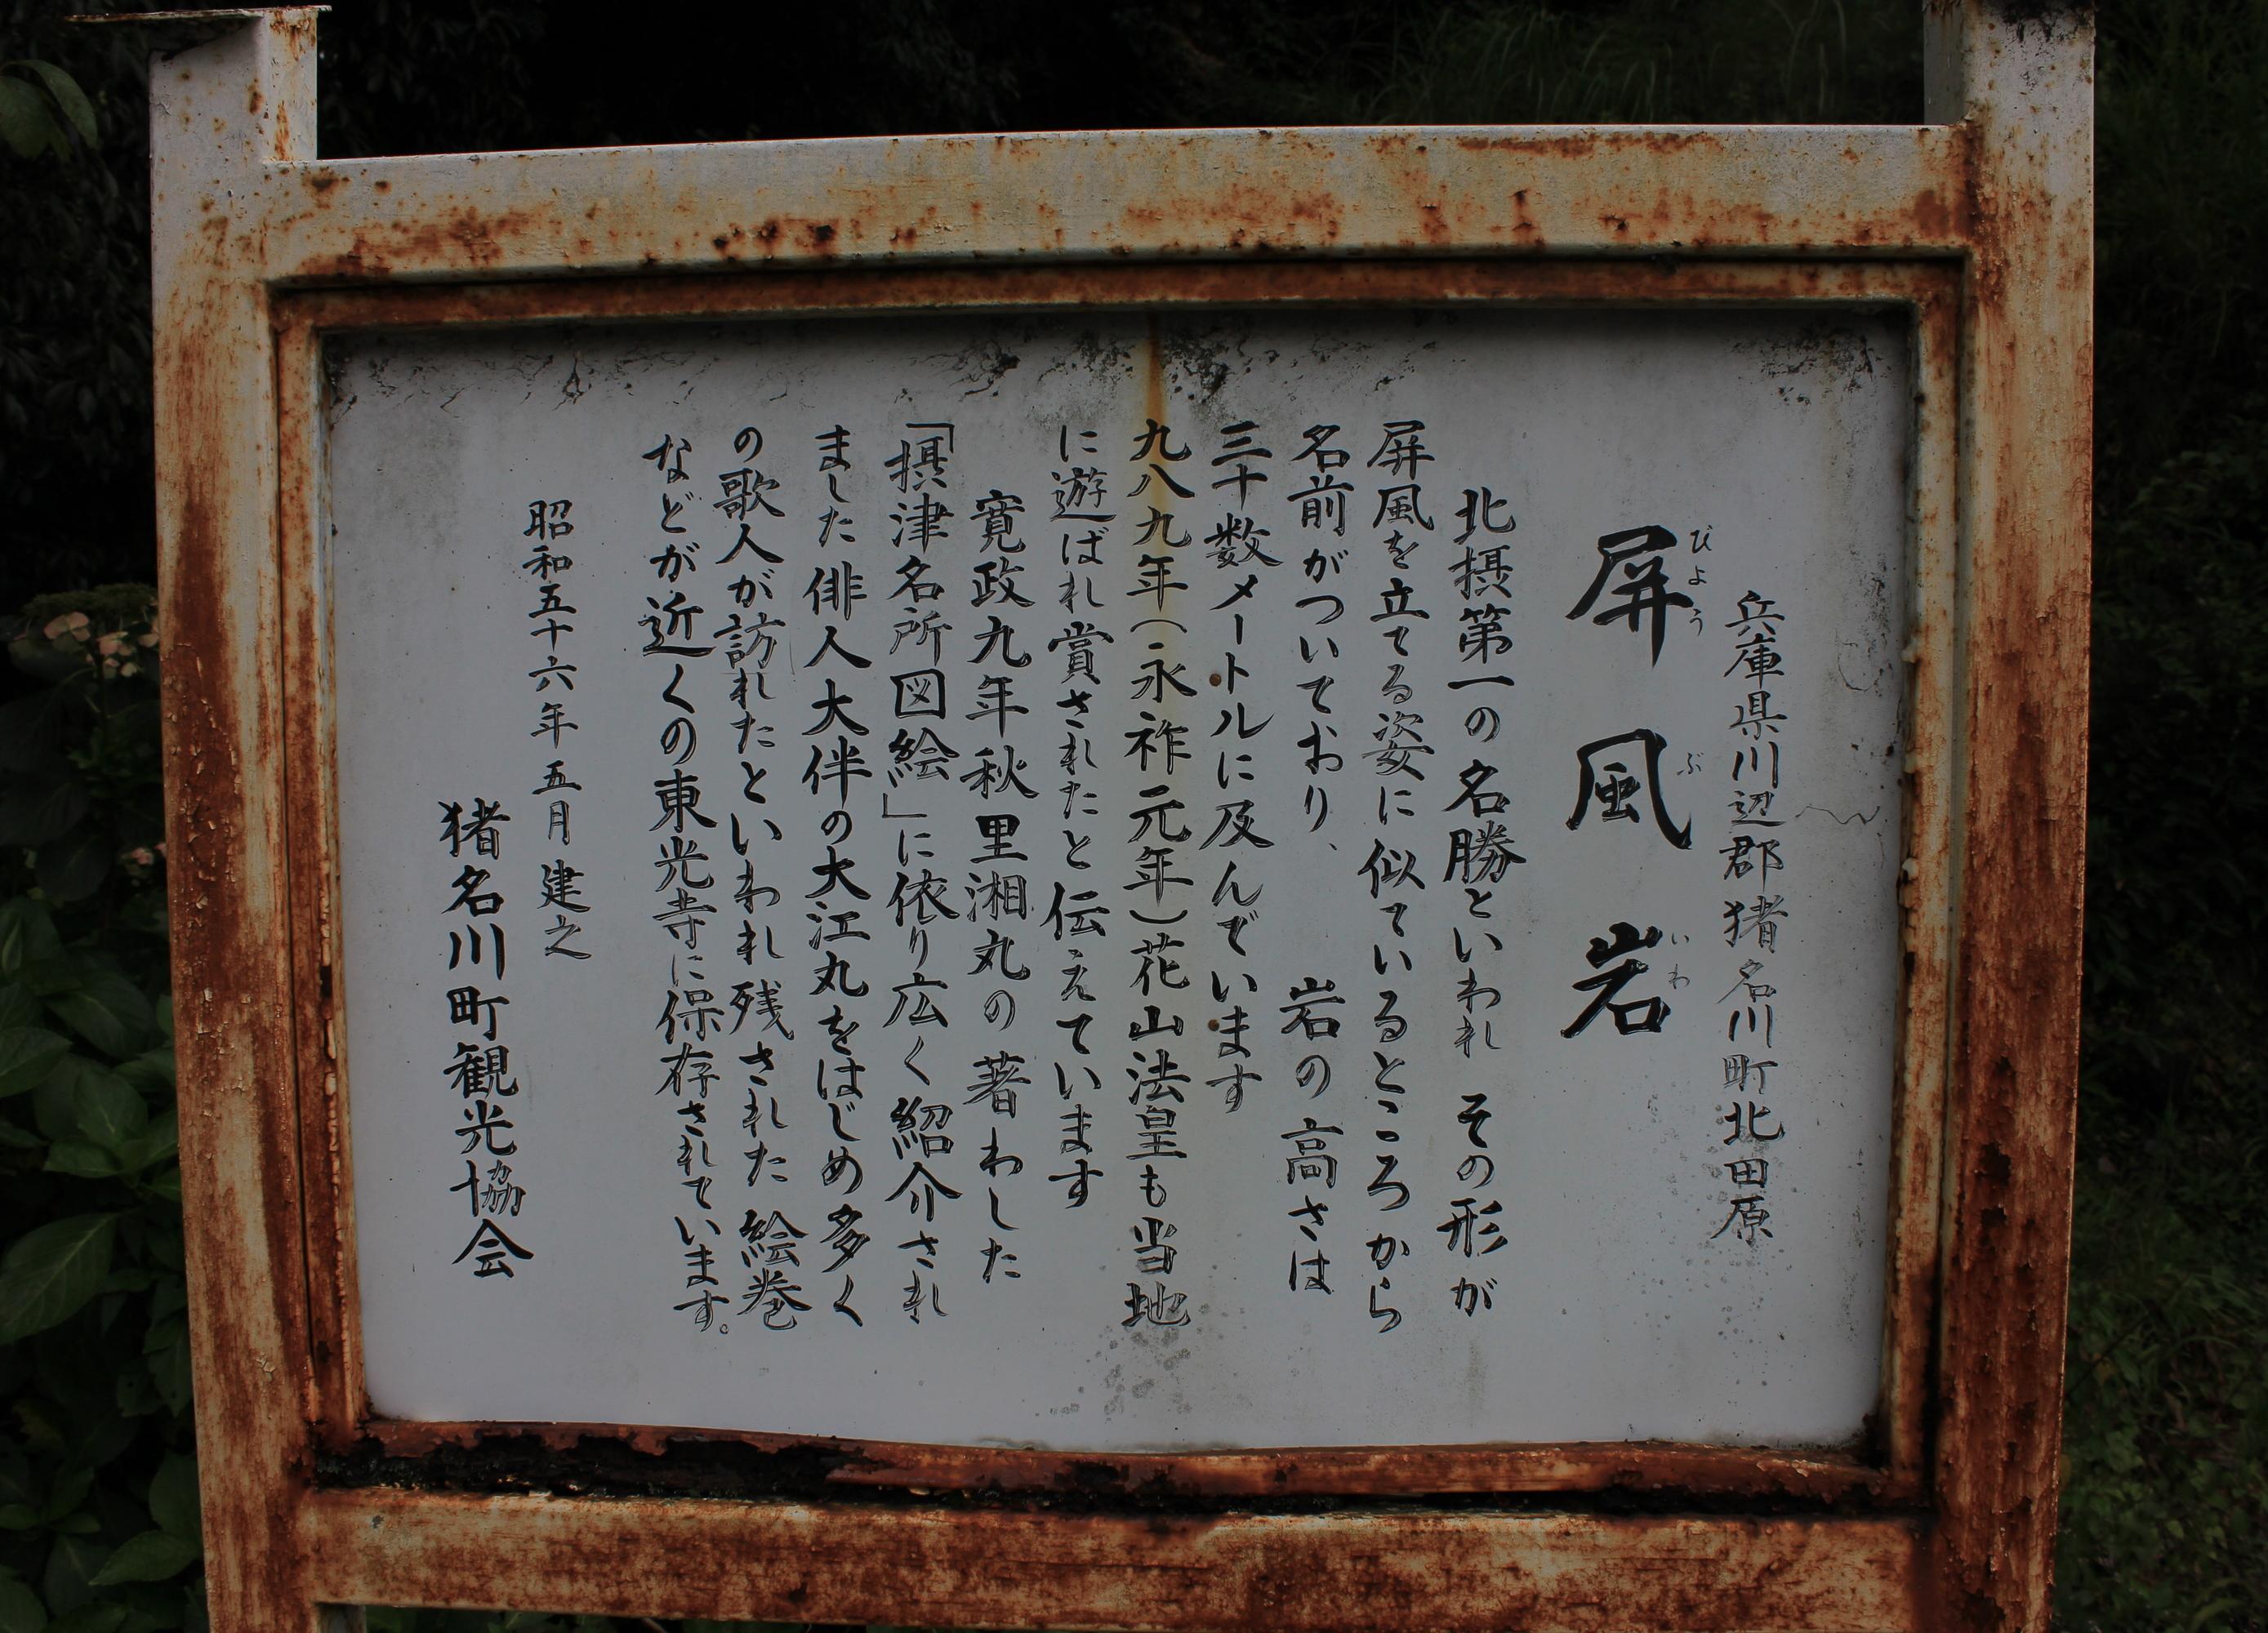 兵庫県川辺郡猪名川町北田原
屏風岩
びょうぶいわ
北摂第一の名勝といわれ その形が
屏風を立てる姿に似ているところから
名前がついており、 岩の高さは
三十数メートルに及んでいます
九八九年(永祚元年)花山法皇も当地
に遊ばれ賞されたと伝えています
寛政九年秋里湘丸の著わした
「摂津名所図絵」に依り広く紹介され
ました俳人大伴の大江丸をはじめ多く
の歌人が訪れたといわれ残された絵巻
などが近くの東光寺に保存されています。
昭和五十六年五月建之
猪名川町観光協会